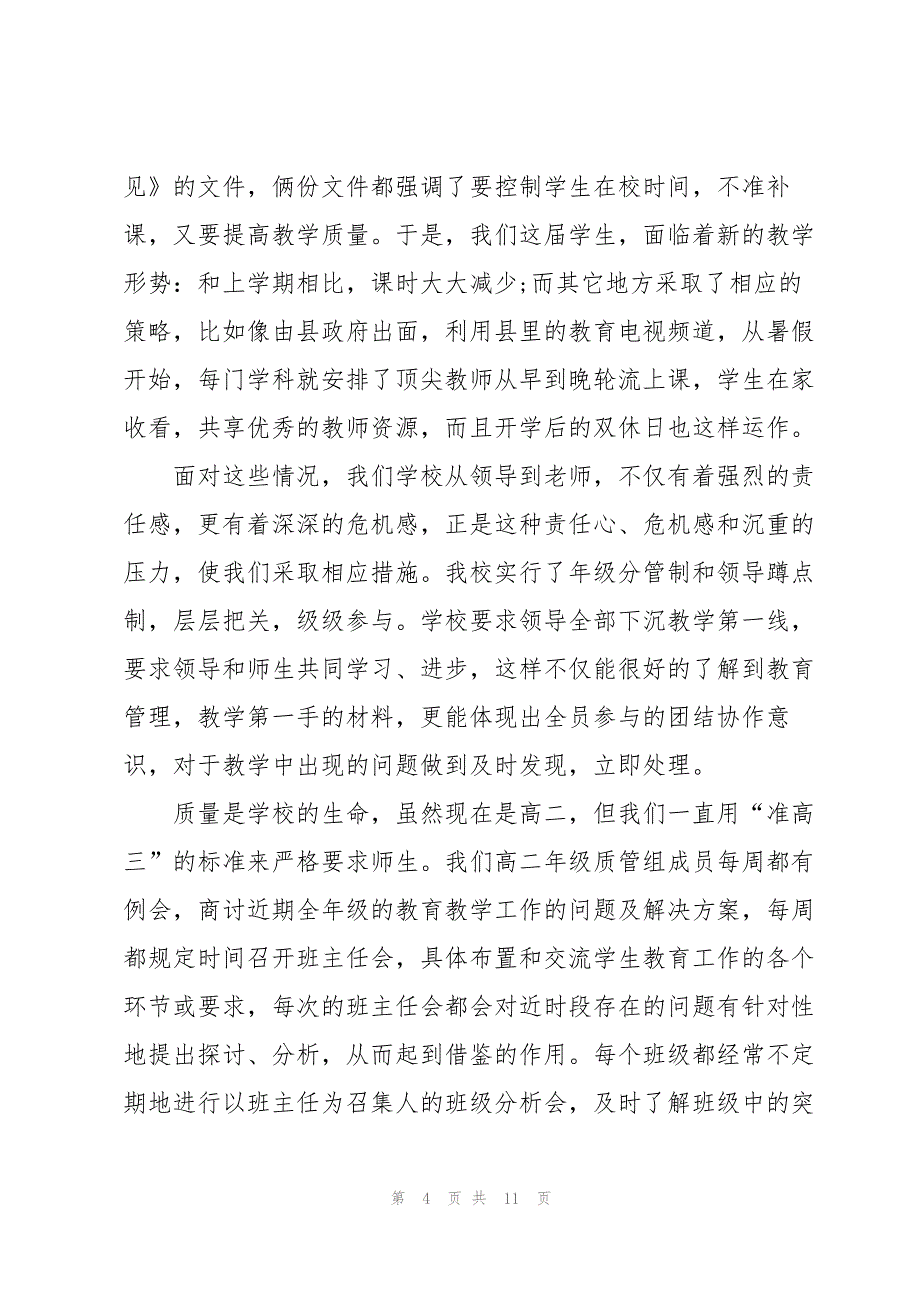 见》的文件，俩份文件都强调了要控制学生在校时间，不准补
课，又要提高教学质量。于是，我们这届学生，面临着新的教学
形势：和上学期相比，课时大大减少;而其它地方采取了相应的
策略，比如像由县政府出面，利用县里的教育电视频道，从暑假
开始，每门学科就安排了顶尖教师从早到晚轮流上课，学生在家
收看，共享优秀的教师资源，而且开学后的双休日也这样运作。
面对这些情况，我们学校从领导到老师，不仅有着强烈的责
任感，更有着深深的危机感，正是这种责任心、危机感和沉重的
压力，使我们采取相应措施。我校实行了年级分管制和领导蹲点
制，层层把关，级级参与。学校要求领导全部下沉教学第一线，
要求领导和师生共同学习、进步，这样不仅能很好的了解到教育
管理，教学第一手的材料，更能体现出全员参与的团结协作意
识，对于教学中出现的问题做到及时发现，立即处理。
质量是学校的生命，虽然现在是高二，但我们一直用“准高
三”的标准来严格要求师生。我们高二年级质管组成员每周都有
例会，商讨近期全年级的教育教学工作的问题及解决方案，每周
都规定时间召开班主任会，具体布置和交流学生教育工作的各个
环节或要求，每次的班主任会都会对近时段存在的问题有针对性
地提出探讨、分析，从而起到借鉴的作用。每个班级都经常不定
期地进行以班主任为召集人的班级分析会，及时了解班级中的突
第 4 页 共 11 页